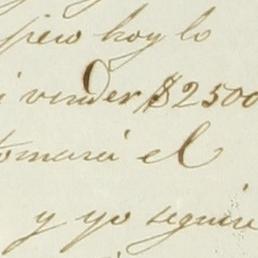 pero hoy lo
i vender $2500
tomaré el
y yo seguire